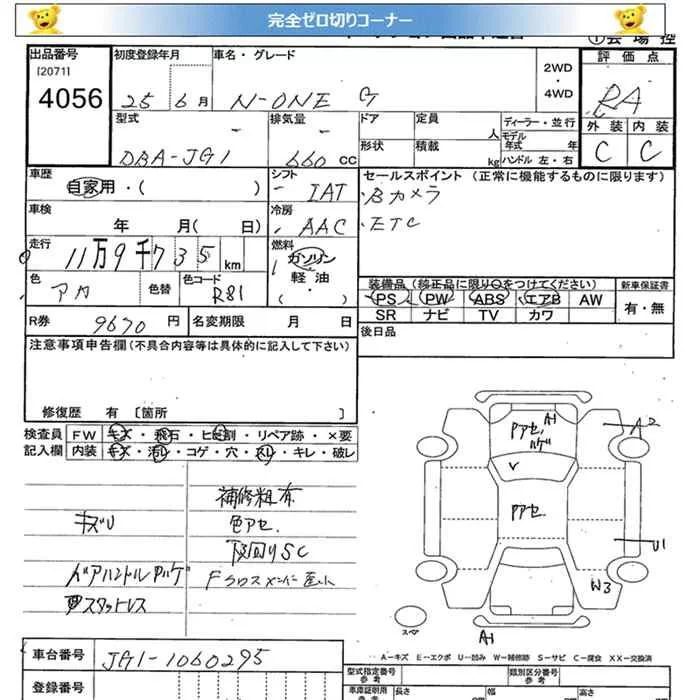 完全ゼロ切りコーナー
出品番号
[2071]
4056
初度登録年月
25 6月
車名・グレード
N-ONE G
2WD
・
4WD
評価点
RA
外装 内装
C C
型式
DBA-JG1
排気量
660 cc
ドア
定員
人
形状
積載
kg
ディーラー・並行
モデル
年式 年
ハンドル 左・右
車歴
自家用・( )
シフト
IAT
セールスポイント (正常に機能するものに限ります)
Bカメラ
ETC
車検
年 月( 日)
冷房
AAC
走行
11万9千735 km
燃料
ガソリン
軽油
・
( )
色
アカ
色替
色コード
R81
装備品(純正品に限り○をつけてください)
PS PW ABS エアB AW
SR ナビ TV カワ
新車保証書
有・無
R券 9670 円
名変期限 月 日
後日品
注意事項申告欄(不具合内容等は具体的に記入して下さい)
修復歴 有 [箇所 ]
検査員 FW キズ・飛石・ヒビ割・リペア跡・×要
記入欄 内装 キズ・汚レ・コゲ・穴・スレ・キレ・破レ
補修粗布
キズU
色アセ.
下回りSC
スタットレス
A1
アアセ.
ハゲ
A2
V
アアセ.
U1
W3
スペア
A1
A-キズ E-エクボ U-凹み W-補修跡 S-サビ C-腐食 XX-交換済
車台番号 JG1-1060295
型式指定番号
参考
類別区分番号
参考
登録番号
車庫証明用
長さ
幅
高さ